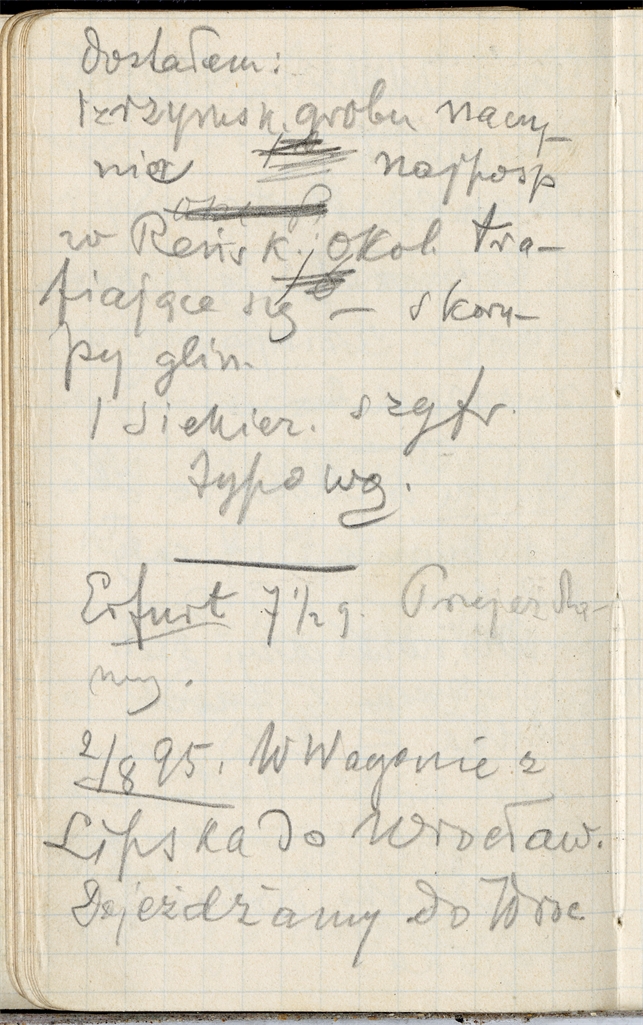 Dostałem:
1 z rzymsk. grobu naczy-
nie najposp
w Reńsk. Okol. tra-
fiające się – skoru-
py glin.
1 siekier. szyfr.
typową.
Erfurt 7 1/2 g. Przejeżdża-
my.
2/8 95. W Wagonie z
Lipska do Wrocław.
Dojeżdżamy do Wroc